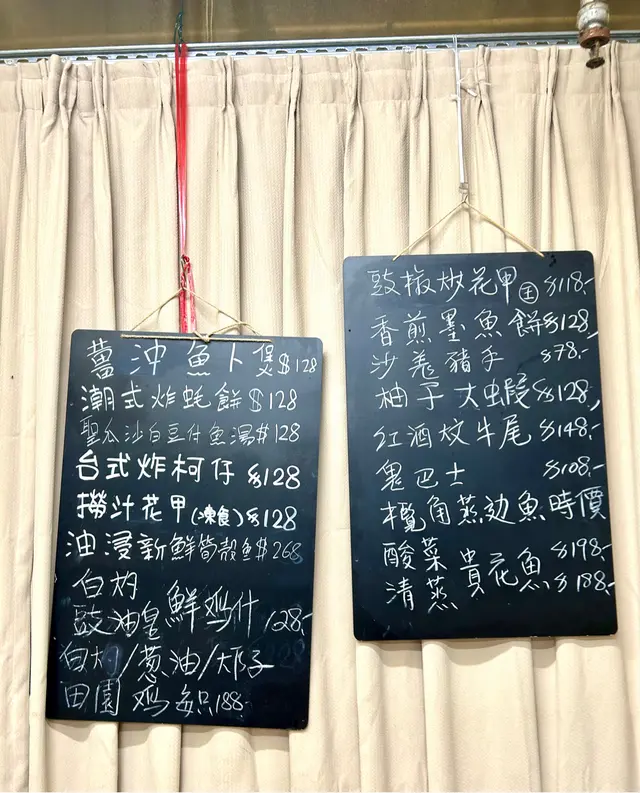 薑沖魚卜煲$128
潮式炸蚝餅$128
聖瓜沙白豆仆魚湯$128
台式炸柯仔$128
撈汁花甲(凍食)$128
油浸新鮮筍殼魚$268
白灼
豉油皇 鮮鸡什 128.-
白灼/葱油/
田園鸡每只188-
豉椒炒花甲 $118.-
香煎墨魚餅$128
沙羗豬手 $78.-
柚子大蝦$128.
红酒炆牛尾$148.-
鬼巴士 $108.-
欖角蒸边魚時價
酸菜 $198-
清蒸 貴花魚 $188.-